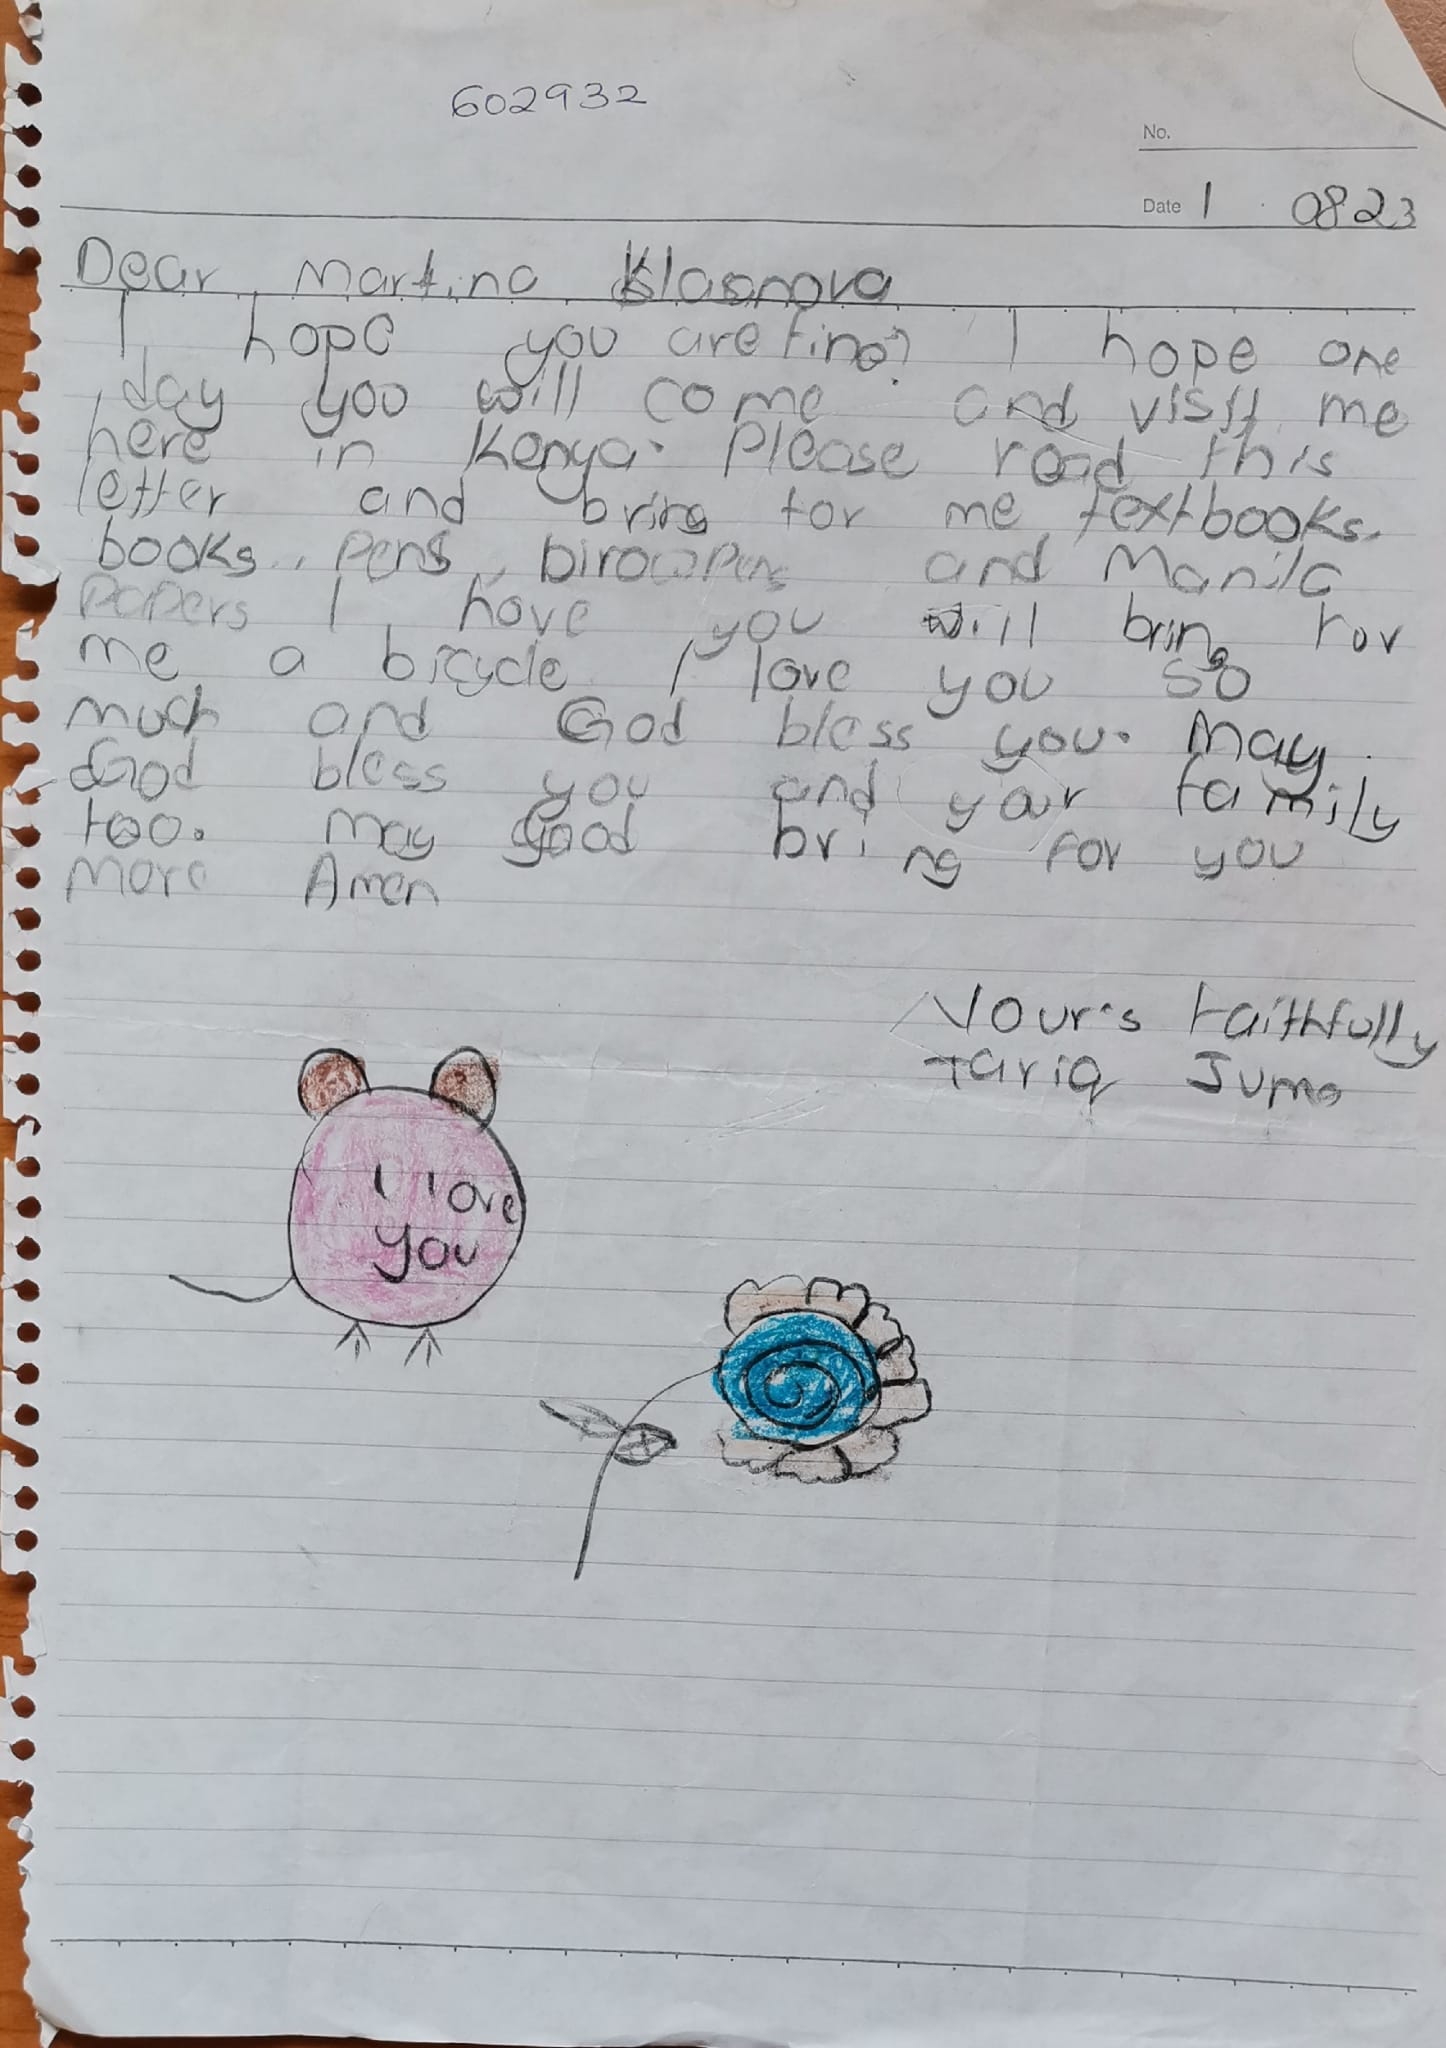 602932
No.
Date 1 0823
Dear Martina Klasnova
I hope you are fine? I hope one
day you will come and visit me
here in Kenya. Please read this
letter and bring for me textbooks.
books, pens, and Manila
papers I have you will bring for
me a bicycle I love you so
much and God bless you. May
God bless you and your family
too. May good bring for you
more Amen
Your's faithfully
Tariq Juma
I love
you